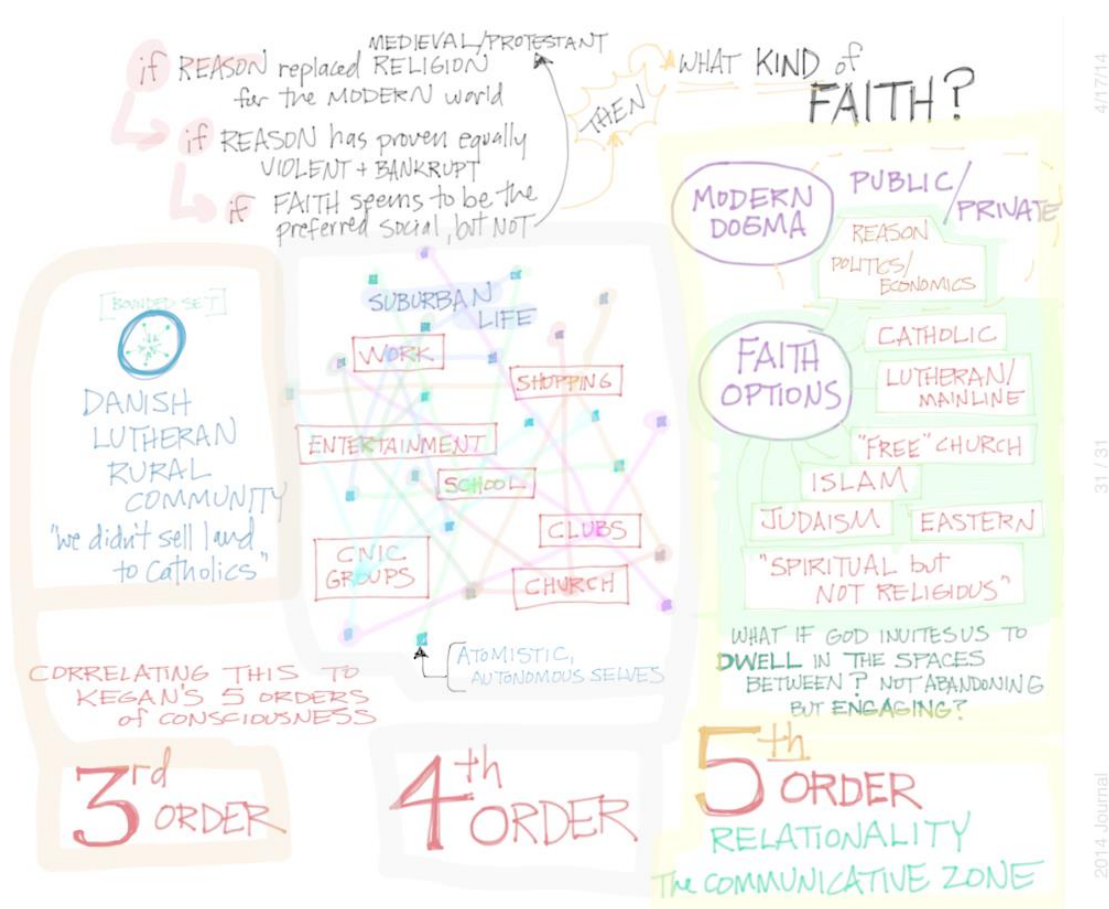 if REASON replaced RELIGION
MEDIEVAL/PROTESTANT
for the MODERN world
if REASON has proven equally
VIOLENT + BANKRUPT
if FAITH seems to be the
preferred social, but NOT
THEN
WHAT KIND of
FAITH?
BOUNDED SET
DANISH
LUTHERAN
RURAL
COMMUNITY
"we didn't sell land
to Catholics"
SUBURBAN
LIFE
WORK
SHOPPING
ENTERTAINMENT
SCHOOL
CLUBS
CIVIC
GROUPS
CHURCH
ATOMISTIC,
AUTONOMOUS SELVES
MODERN
DOGMA
PUBLIC/
PRIVATE
REASON
POLITICS/
ECONOMICS
FAITH
OPTIONS
CATHOLIC
LUTHERAN/
MAINLINE
"FREE" CHURCH
ISLAM
JUDAISM
EASTERN
"SPIRITUAL but
NOT RELIGIOUS"
WHAT IF GOD INVITES US TO
DWELL IN THE SPACES
BETWEEN? NOT ABANDONING
BUT ENGAGING?
CORRELATING THIS TO
KEGAN'S 5 ORDERS
of CONSCIOUSNESS
3rd
ORDER
4th
ORDER
5th
ORDER
RELATIONALITY
The COMMUNICATIVE ZONE
4/17/14
31 / 31
2014 Journal